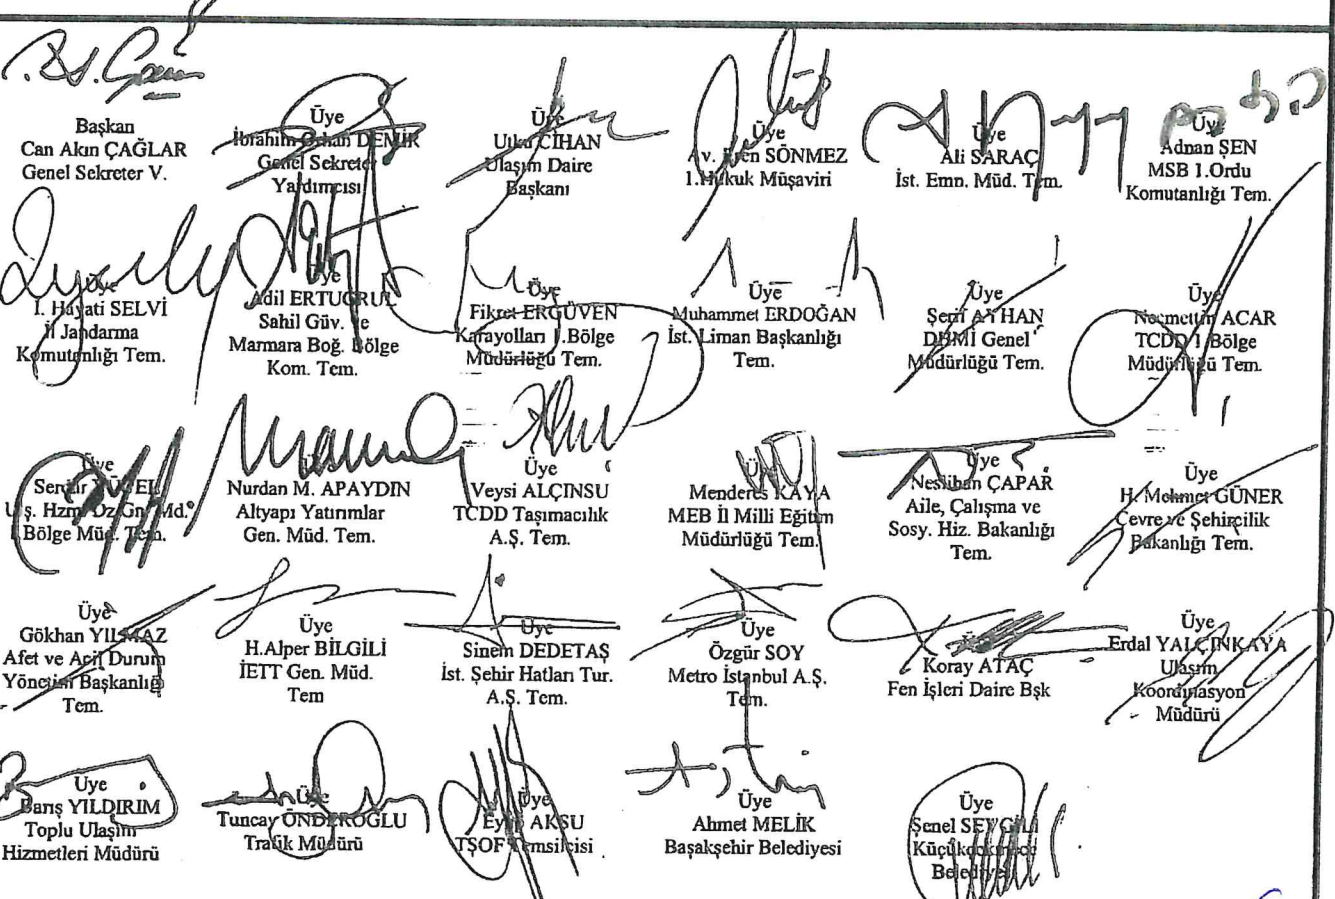 Başkan
Can Akın ÇAĞLAR
Genel Sekreter V.
Üye
İbrahim Orhan DEMİR
Genel Sekreter
Yardımcısı
Üye
Utku CİHAN
Ulaşım Daire
Başkanı
Üye
Av. Eren SÖNMEZ
1.Hukuk Müşaviri
Üye
Ali SARAÇ
İst. Emn. Müd. Tem.
Üye
Adnan ŞEN
MSB 1.Ordu
Komutanlığı Tem.
Üye
İ. Hayati SELVİ
İl Jandarma
Komutanlığı Tem.
Üye
Adil ERTUĞRUL
Sahil Güv. ve
Marmara Boğ. Bölge
Kom. Tem.
Üye
Fikret ERGÜVEN
Karayolları 1.Bölge
Müdürlüğü Tem.
Üye
Muhammet ERDOĞAN
İst. Liman Başkanlığı
Tem.
Üye
Şerif AYHAN
DHMİ Genel
Müdürlüğü Tem.
Üye
Necmettin ACAR
TCDD 1.Bölge
Müdürlüğü Tem.
Üye
Serdar YÜCEL
Ulş. Hzm. Öz. Gn. Md.
Bölge Müd. Tem.
Nurdan M. APAYDIN
Altyapı Yatırımlar
Gen. Müd. Tem.
Üye
Veysi ALÇINSU
TCDD Taşımacılık
A.Ş. Tem.
Üye
Menderes KAYA
MEB İl Milli Eğitim
Müdürlüğü Tem.
Üye
Neslihan ÇAPAR
Aile, Çalışma ve
Sosy. Hiz. Bakanlığı
Tem.
Üye
H. Mehmet GÜNER
Çevre ve Şehircilik
Bakanlığı Tem.
Üye
Gökhan YILMAZ
Afet ve Acil Durum
Yönetim Başkanlığı
Tem.
Üye
H.Alper BİLGİLİ
İETT Gen. Müd.
Tem
Üye
Sinem DEDETAŞ
İst. Şehir Hatları Tur.
A.Ş. Tem.
Üye
Özgür SOY
Metro İstanbul A.Ş.
Tem.
Koray ATAÇ
Fen İşleri Daire Bşk
Üye
Erdal YALÇINKAYA
Ulaşım
Koordinasyon
Müdürü
Üye
Barış YILDIRIM
Toplu Ulaşım
Hizmetleri Müdürü
Üye
Tuncay ÖNDEROĞLU
Trafik Müdürü
Üye
Eyüp AKSU
TŞOF Temsilcisi
Üye
Ahmet MELİK
Başakşehir Belediyesi
Üye
Şenel SEVGİLİ
Küçükçekmece
Belediyesi